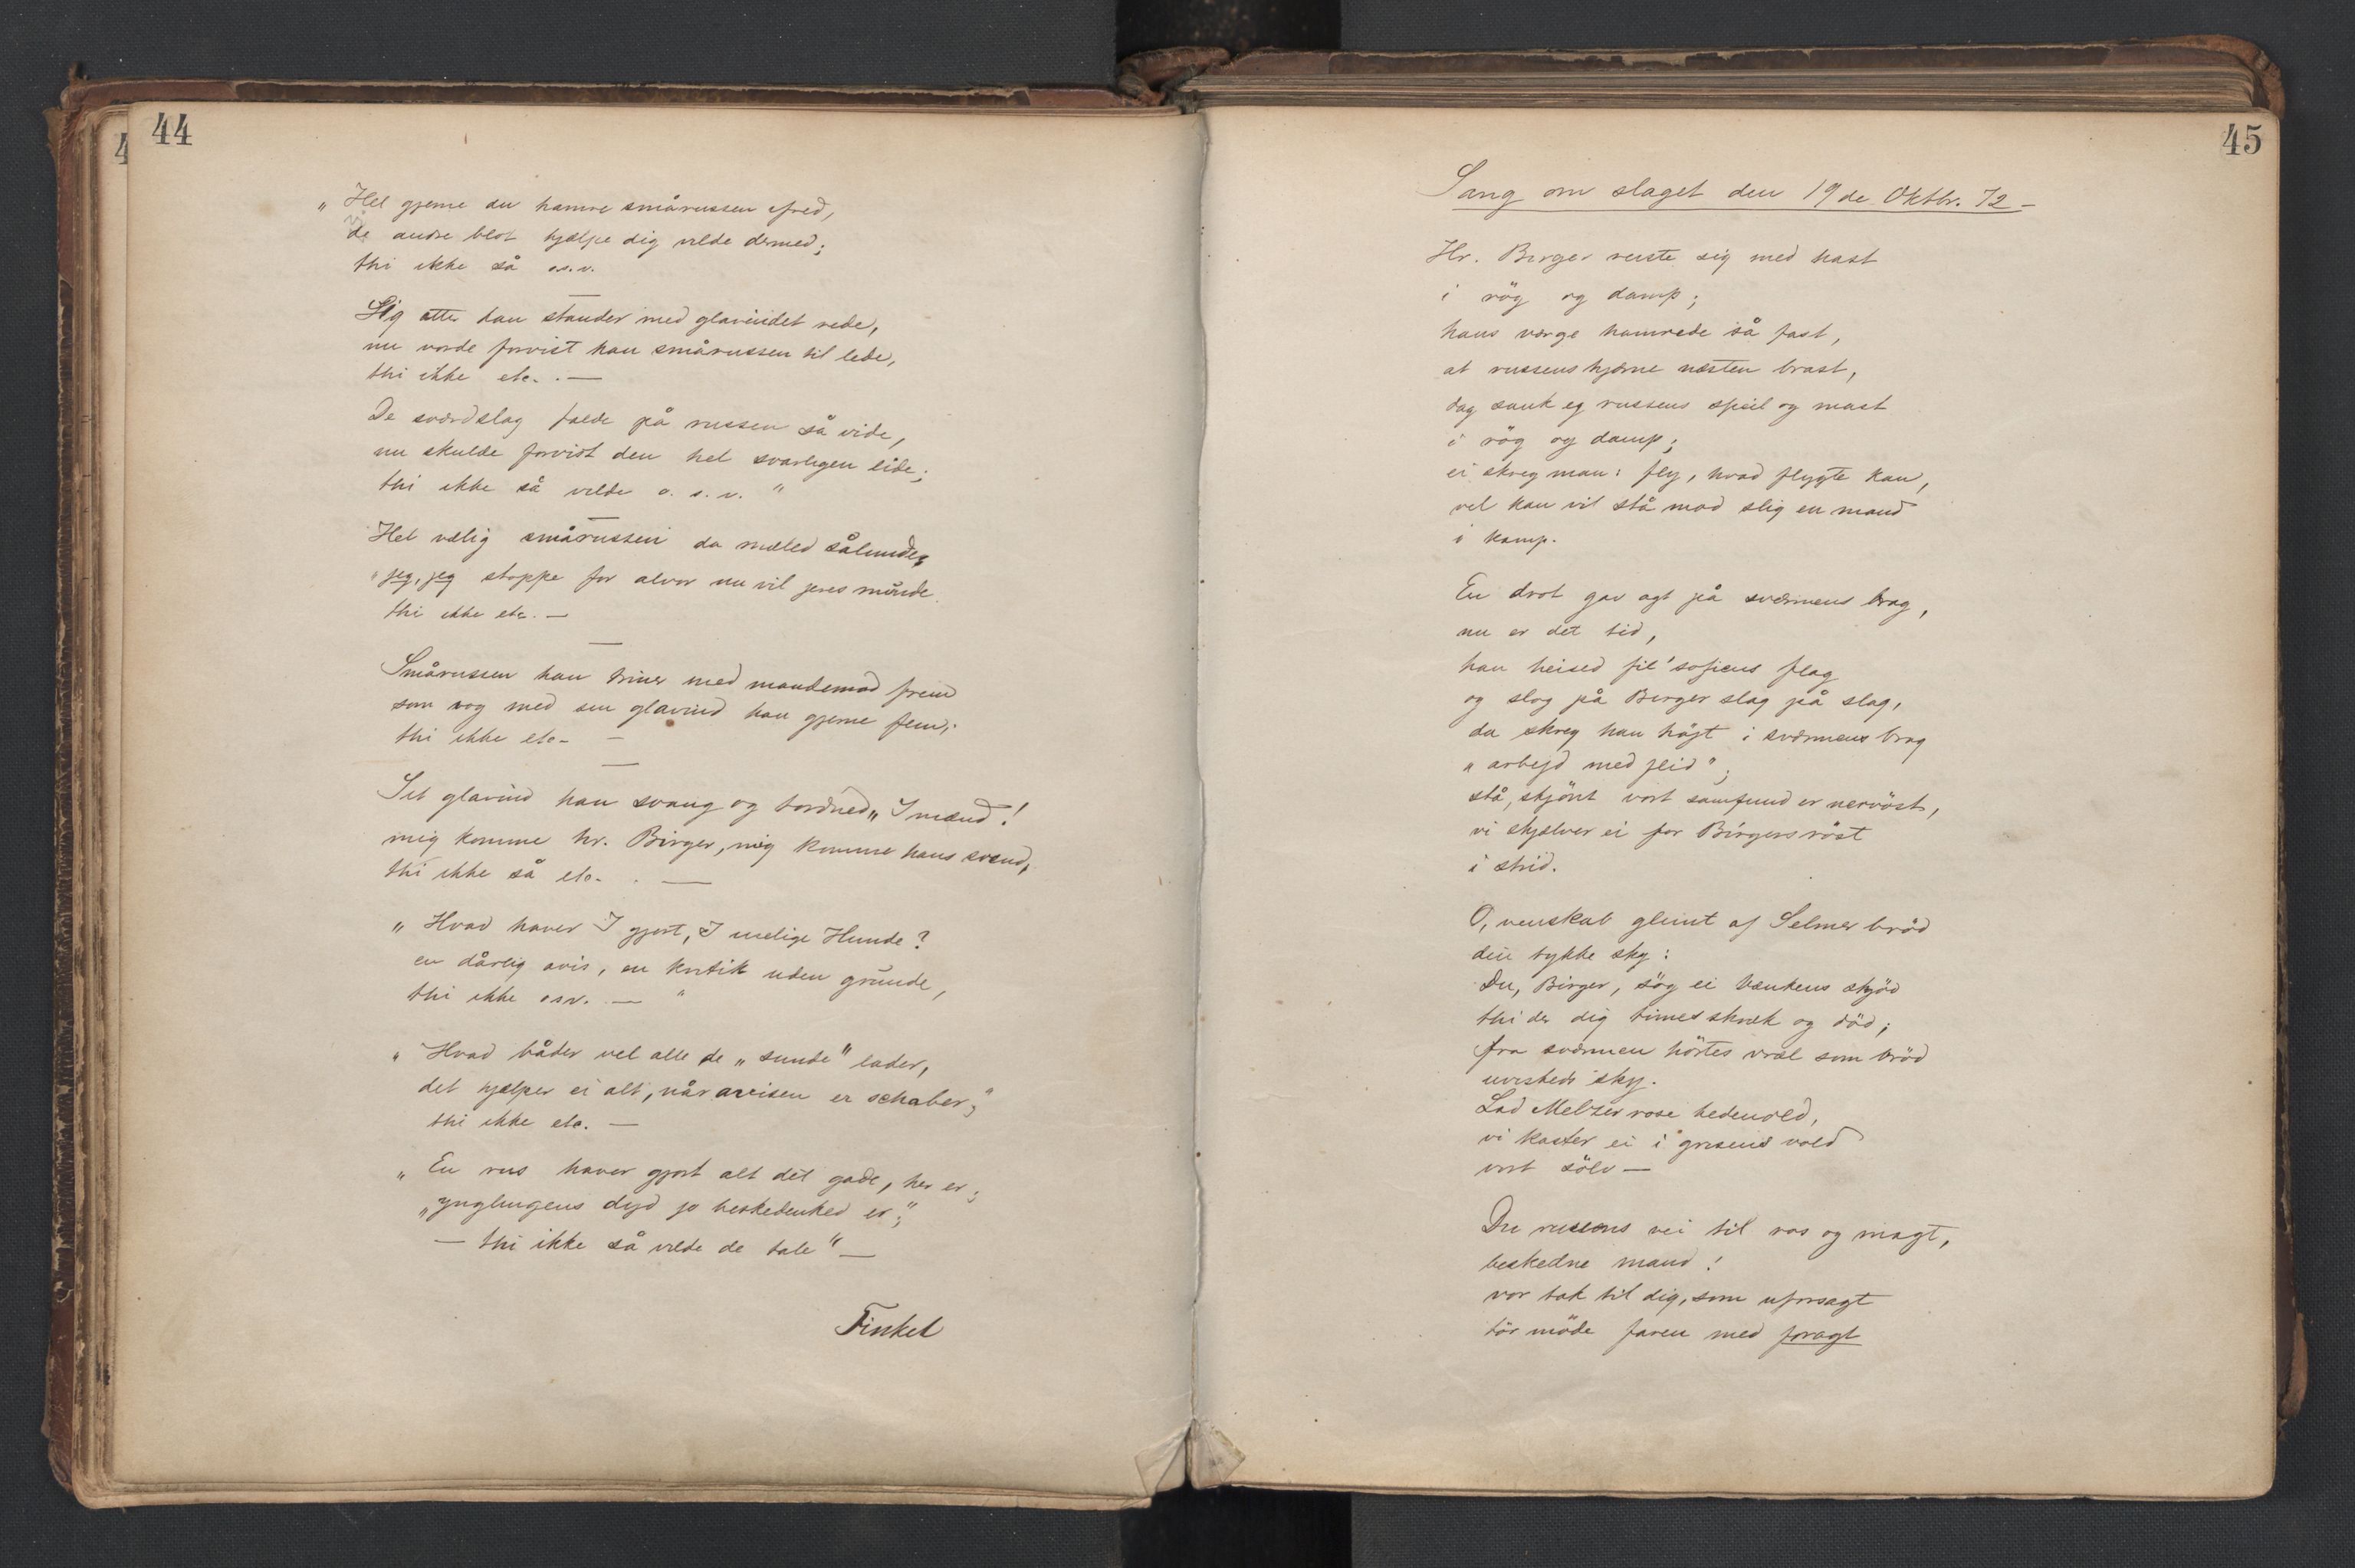 44
„ Hel gjerne du hamre smårussen ihed,
de andre blot hjælpe dig vilde dermed;
thi ikke så o.s.v.
Sig atter han stander med glavindet rede,
nu vorde forvist han smårussen til lede,
thi ikke etc. . —
De sværdslag falde på russen så vide,
nu skulde forvist den hel svarligen lide;
thi ikke så vilde o. s. v. "
Hel vælig smårussen da mæled sålunde,
„jeg, jeg stoppe for alvor nu vil jeres munde.
thi ikke etc. —
Smårussen han triner med mandemod frem
som vog med sin glavind han gjerne fem;
thi ikke etc. —
Sit glavind han svang og tordned „I mænd!
mig komme hr. Birger, mig komme hans svend,
thi ikke så etc. . —
„ Hvad haver I gjort, I uselige Hunde?
en dårlig avis, en kritik uden grunde,
thi ikke osv. — "
„ Hvad båder vel alle de „sunde" lader,
det hjælper ei alt, når avisen er schaber;"
thi ikke etc. —
„ En rus haver gjort alt det gode, her er;
„ynglingens dyd jo beskedenhed er;"
— thi ikke så vilde de tale" —
Finkel
45
Sang om slaget den 19de Oktbr. 72 —
Hr. Birger reiste sig med hast
i røg og damp;
hans værge hamrede så fast,
at russens hjerne næsten brast,
dag sank eg russens speil og mast
i røg og damp;
ei skreg man: fly, hvad flygte kan,
vel kan vil stå mod slig en mand
i kamp.
En drot gav agt på sværmens brag,
nu er det tid,
han heised fil'sofiens flag
og slog på Birger slag på slag,
da skreg han höjt i sværmens brag
„arbejd med flid";
stå, skjönt vort samfund er nervöst,
vi skjælver ei for Birgers röst
i strid.
O, venskab glimt af Selmer bröd
din tykke sky:
Du, Birger, sög ei bænkens skjöd
thi der dig times skræk og död;
fra sværmen hörtes vræl som bröd
uvisheds sky.
Lad Melzer rose hedenold,
vi kaster ei i grisens vold
vort sölv —
Du russens vei til ros og magt,
beskedne mand!
vor tak til dig, som uforsagt
tör möde faren med foragt